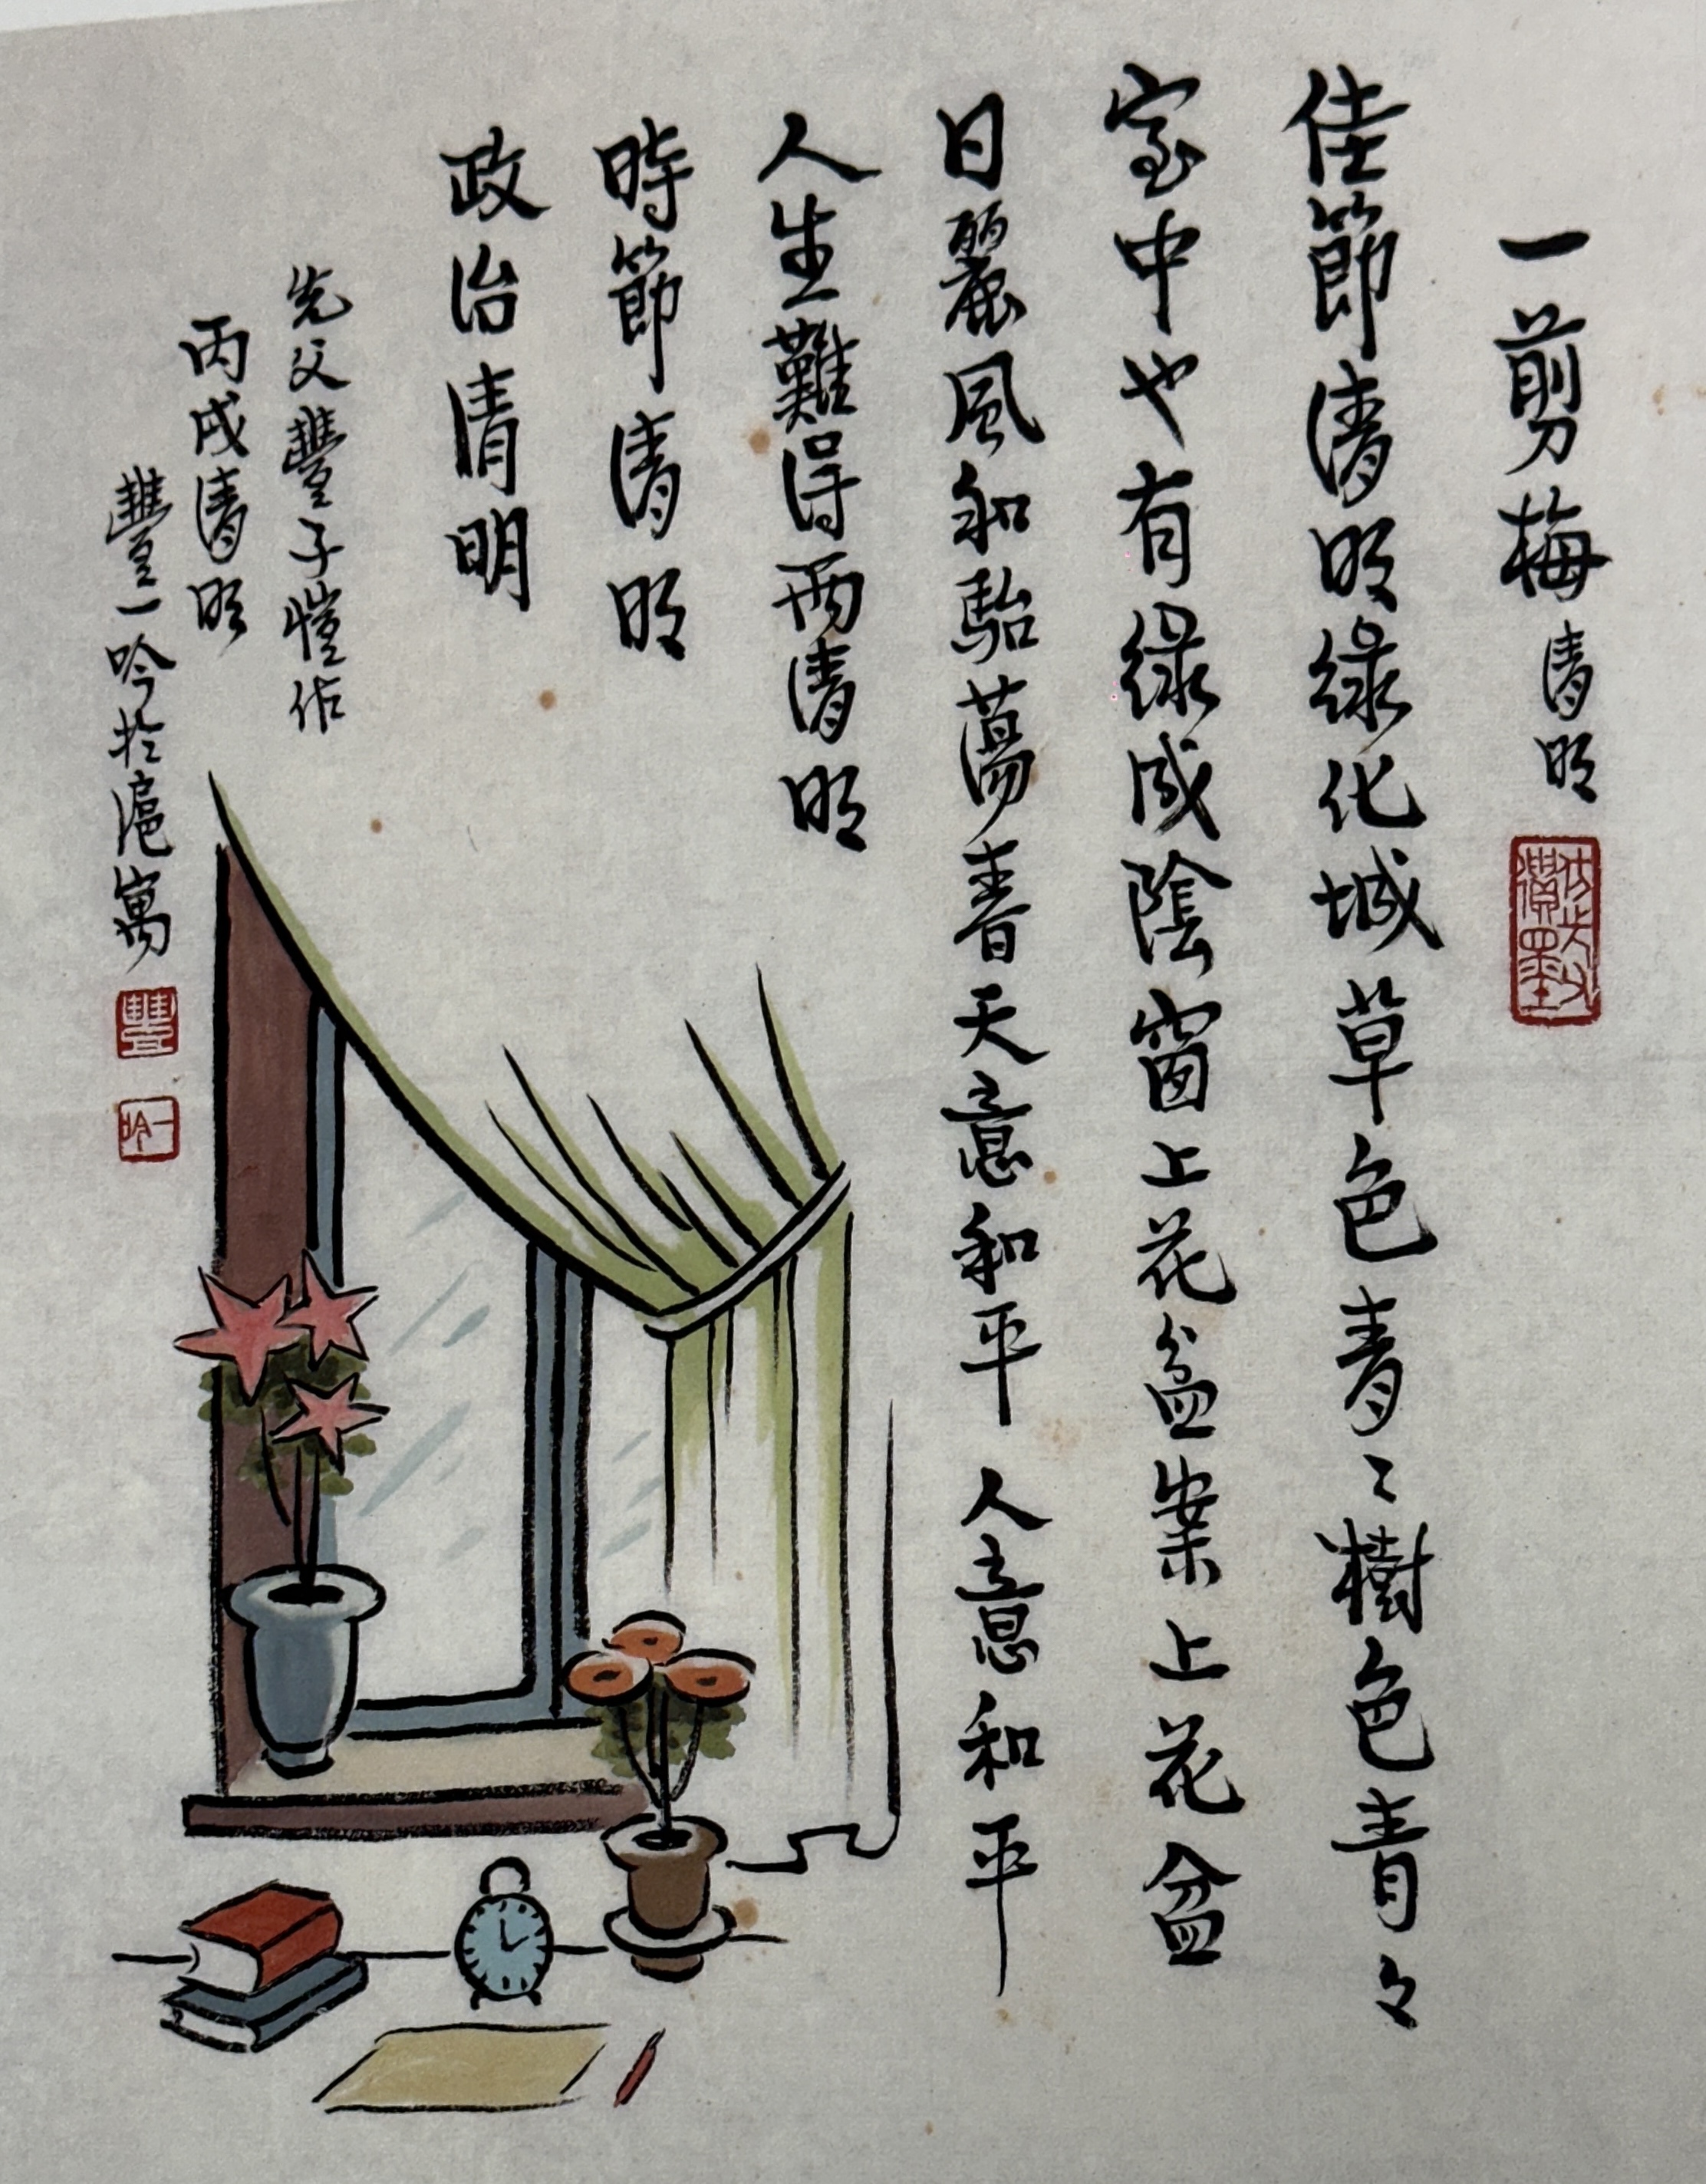 一剪梅 清明
仿先父遺墨
佳節清明綠化城草色青々樹色青々
室中也有綠成陰窗上花盆案上花盆
日麗風和駘蕩春天意和平人意和平
人生難得兩清明
時節清明
政治清明
先父豐子愷作
丙戌清明
豐一吟於滬寓
豐
一吟